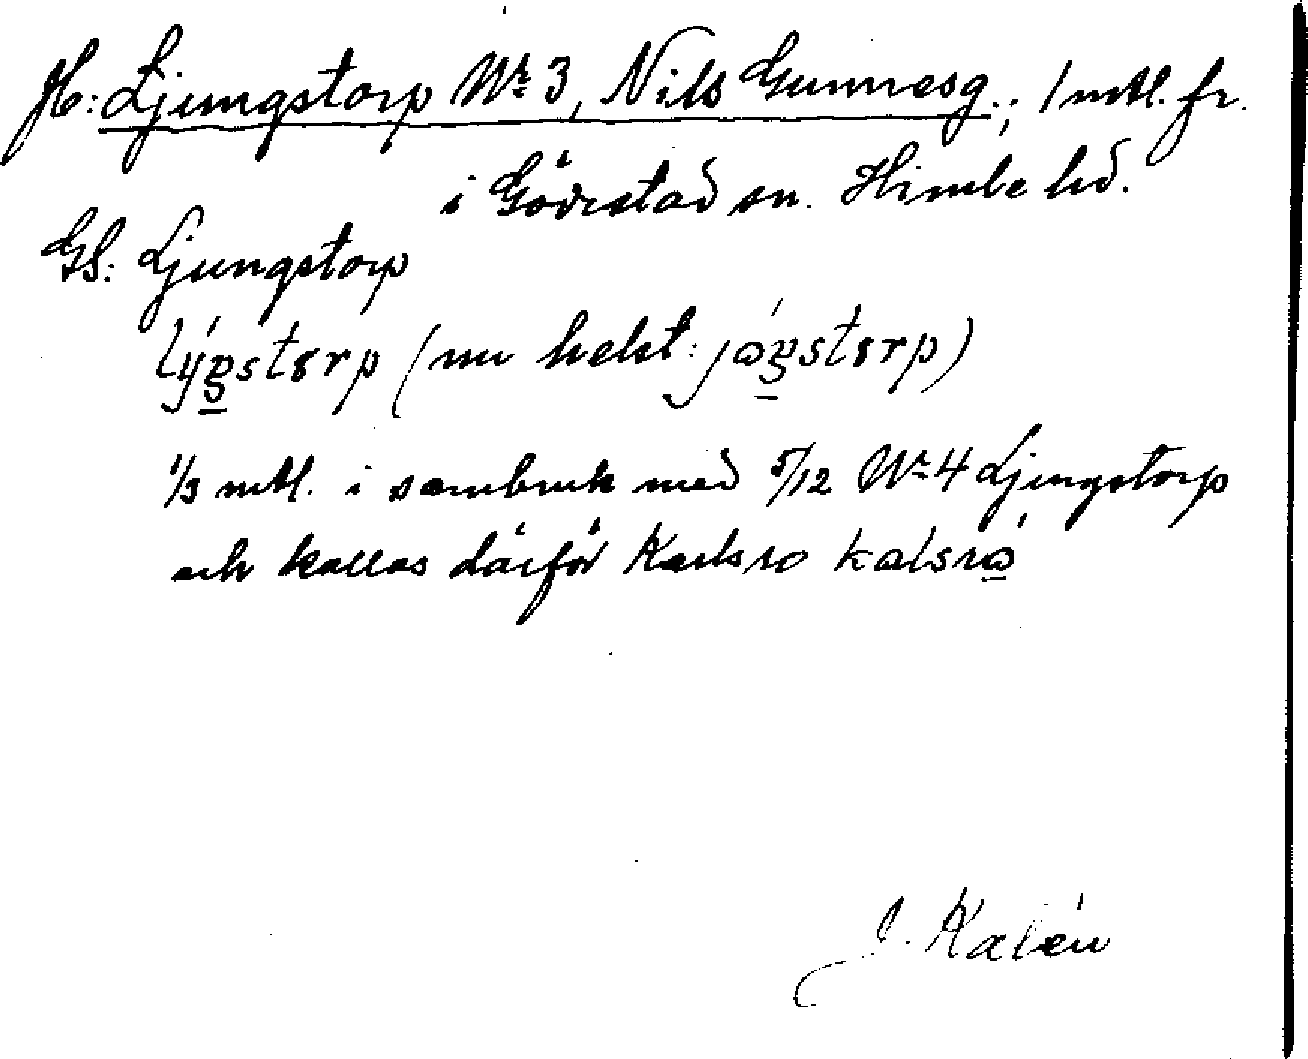 H: Ljungstorp Nr 3, Nils Gunnesg.; 1 mtl. fr.
i Gödestad sn. Himle hd.
GS: Ljungstorp
(nu heldt:
1/3 mtl. i sambruk med 5/12 Nr 4 Ljungstorp
och kallas därför Karlsro kalsro
J. Kalén